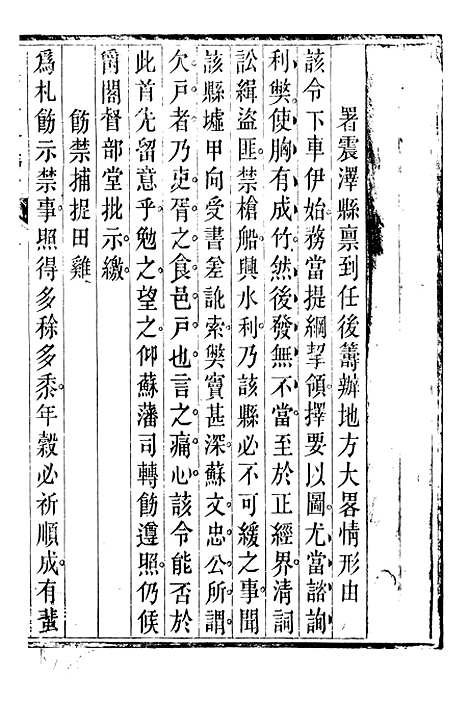 署震澤縣禀到任後籌辦地方大畧情形由
該令下車伊始務當提綱挈領擇要以圖尤當諮詢
利弊使胸有成竹然後發無不當至於正經界清詞
訟緝盜匪禁槍船興水利乃該縣必不可緩之事聞
該縣墟甲向受書差訛索弊竇甚深蘇文忠公所謂
欠戶者乃吏胥之食邑戶也言之痛心該令能否於
此首先留意乎勉之望之仰蘇藩司轉飭遵照仍候
爵閣督部堂批示繳
飭禁捕捉田雞
爲札飭示禁事照得多稌多黍年穀必祈順成有蜚